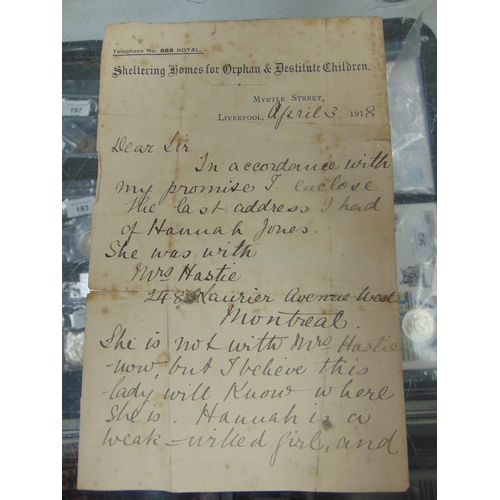 Telephone No. 888 ROYAL.
Sheltering Homes for Orphan & Destitute Children.
MYRTLE STREET,
LIVERPOOL, April 3 1918
Dear Sir
In accordance with
my promise I enclose
the last address I had
of Hannah Jones.
She was with
Mrs Hastie
248 Laurier Avenue West
Montreal.
She is not with Mrs Hastie
now, but I believe this
lady will know where
she is. Hannah is a
weak-willed girl, and
192
193
362